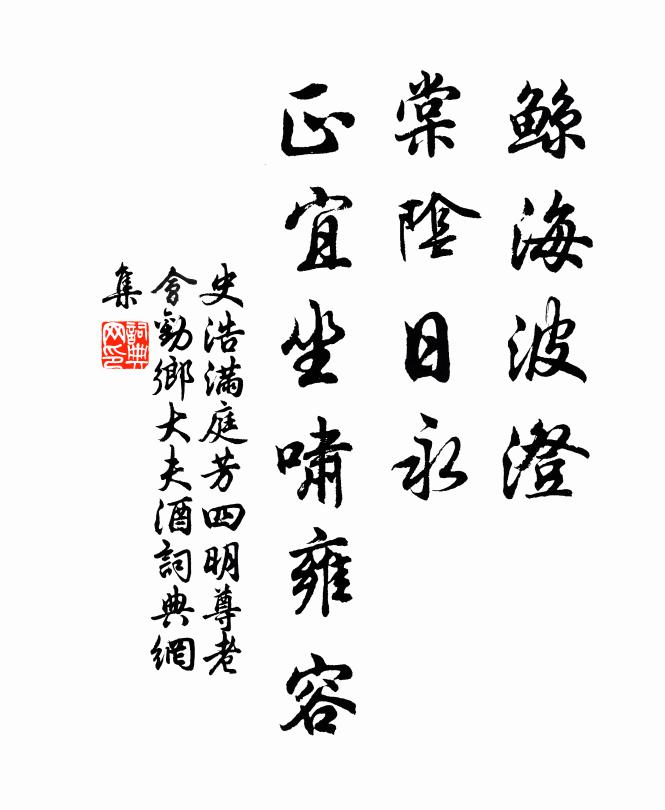 鯨海波澄
棠陰日永
正宜坐嘯雍容
史浩滿庭芳四明尊老
會勸鄉大夫酒詞典網
集
詞典
网印